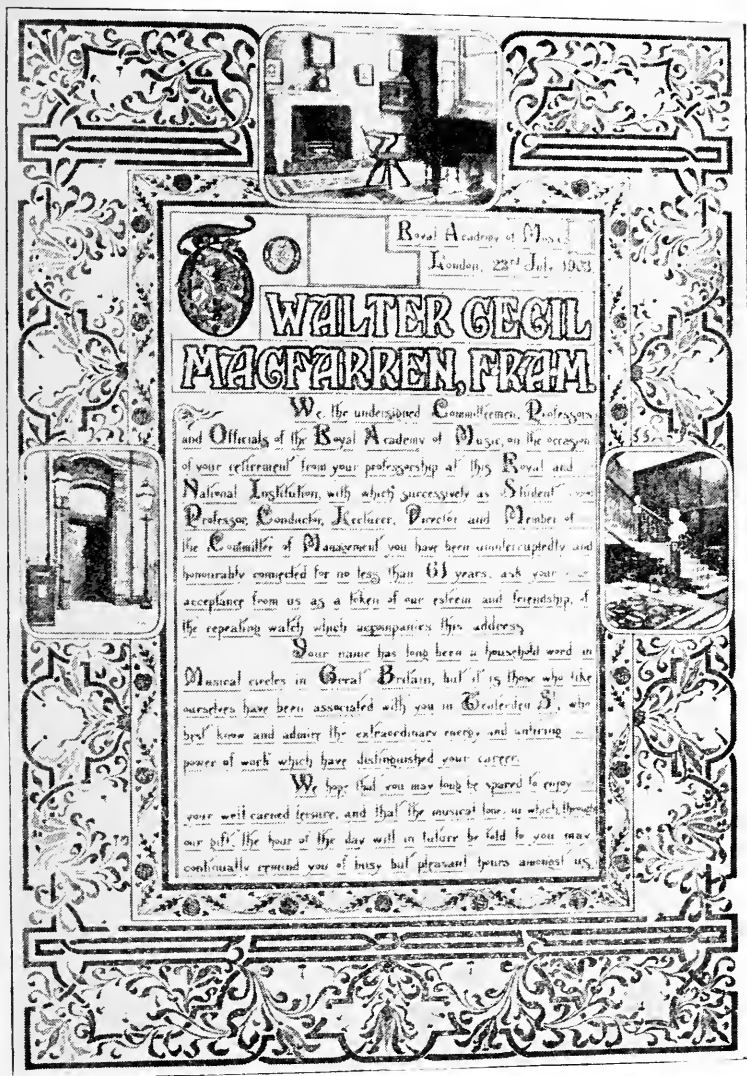 Royal Academy of Music
London, 22nd July 1903
To
WALTER CECIL
MACFARREN, F.R.A.M.
We, the undersigned Committeemen, Professors
and Officials of the Royal Academy of Music, on the occasion
of your retirement from your professorship at this Royal and
National Institution, with which successively as Student
Professor, Conductor, Lecturer, Director and Member of
the Committee of Management you have been uninterruptedly and
honourably connected for no less than 61 years, ask your
acceptance from us as a token of our esteem and friendship, of
the repeating watch which accompanies this address.
Your name has long been a household word in
Musical circles in Great Britain, but it is those who like
ourselves have been associated with you in Tenterden St, who
best know and admire the extraordinary energy and untiring
power of work which have distinguished your career.
We hope that you may long be spared to enjoy
your well earned leisure, and that the musical tone, in which, through
our gift, the hour of the day will in future be told to you may
continually remind you of busy but pleasant hours amongst us.